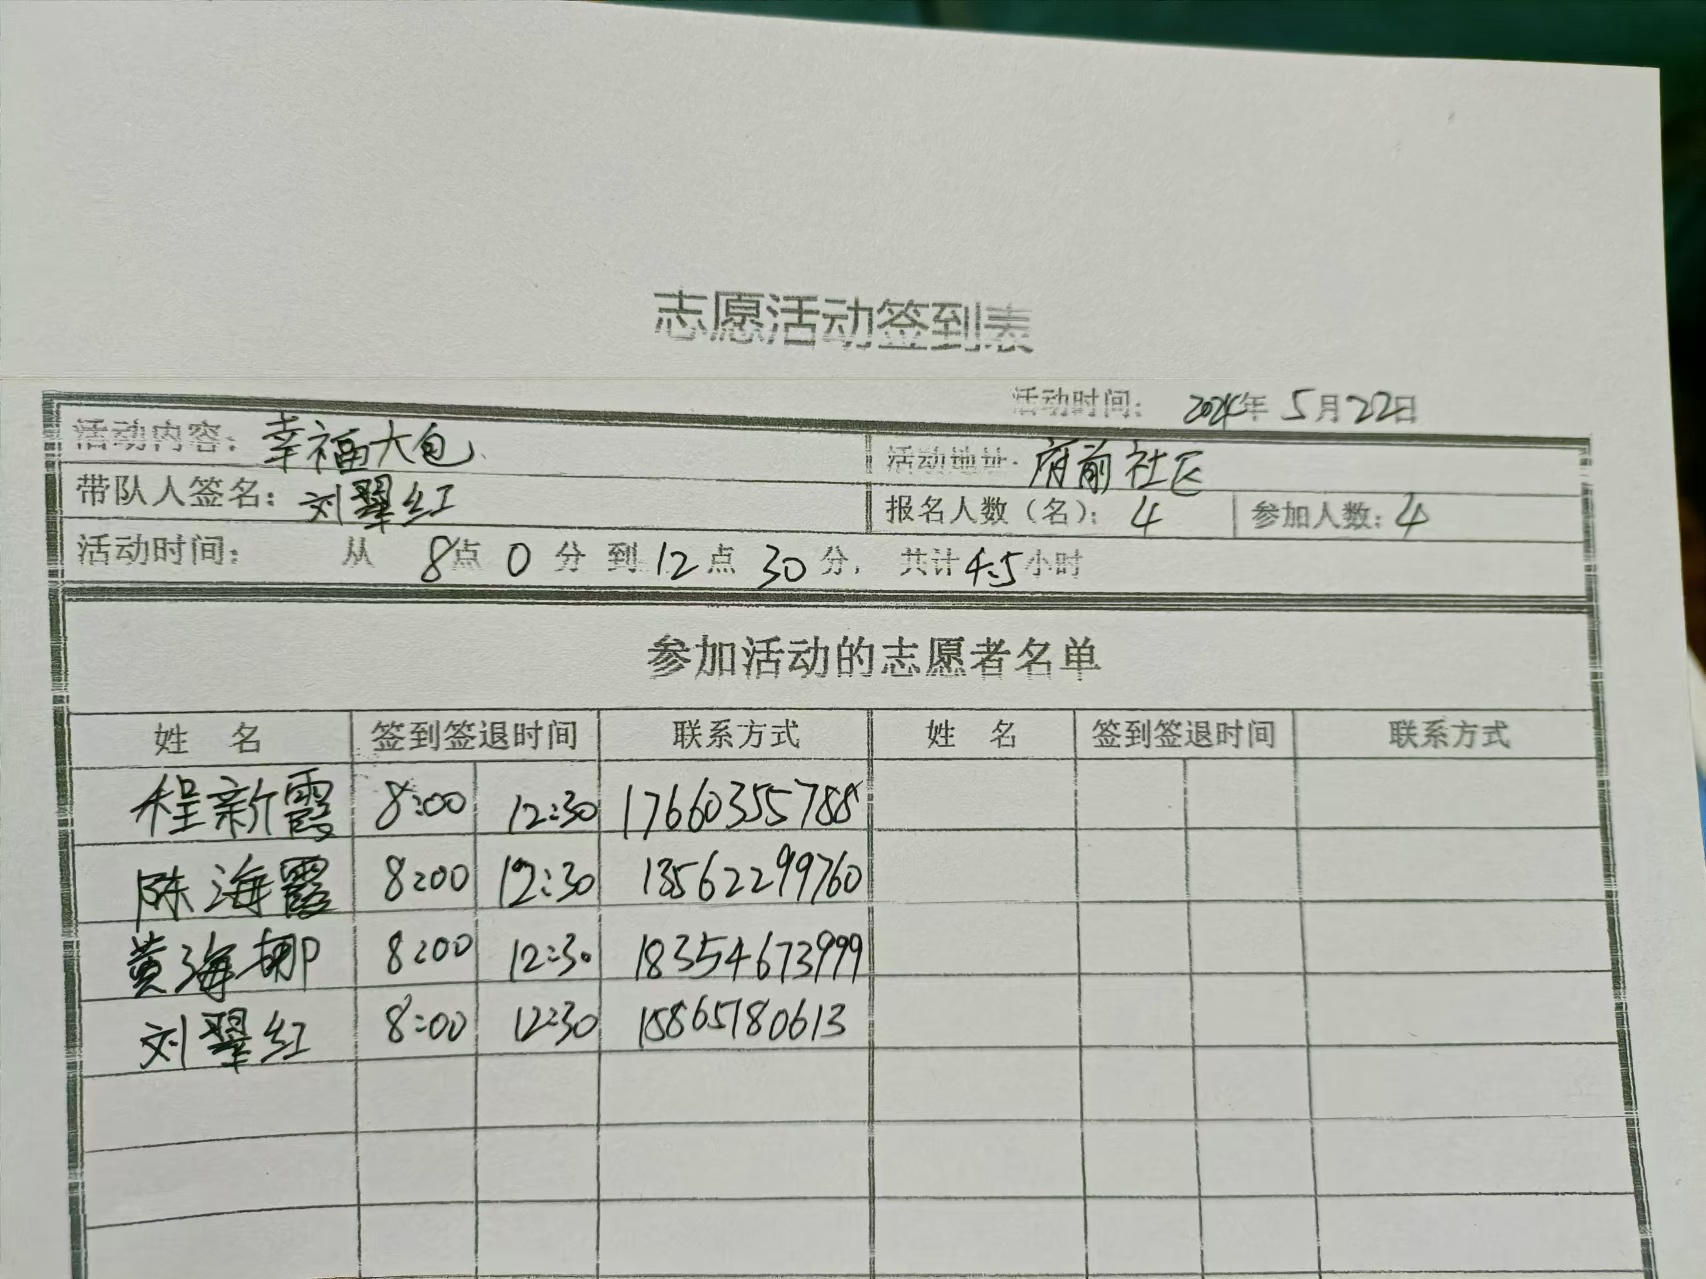 志愿活动签到表
活动时间: 2024年 5月22日
活动内容: 幸福大包 活动地址: 府前社区
带队人签名: 刘翠红 报名人数(名): 4 参加人数: 4
活动时间: 从 8点 0 分 到 12点 30 分, 共计4.5小时
参加活动的志愿者名单
姓 名 签到签退时间 联系方式 姓 名 签到签退时间 联系方式
程新霞 8:00 12:30 17660355788
陈海霞 8:00 12:30 13562299760
黄海娜 8:00 12:30 18354673999
刘翠红 8:00 12:30 15865780613